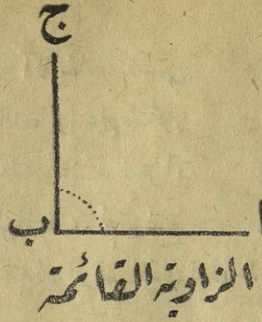 ج
ب
الزاوية القائمة